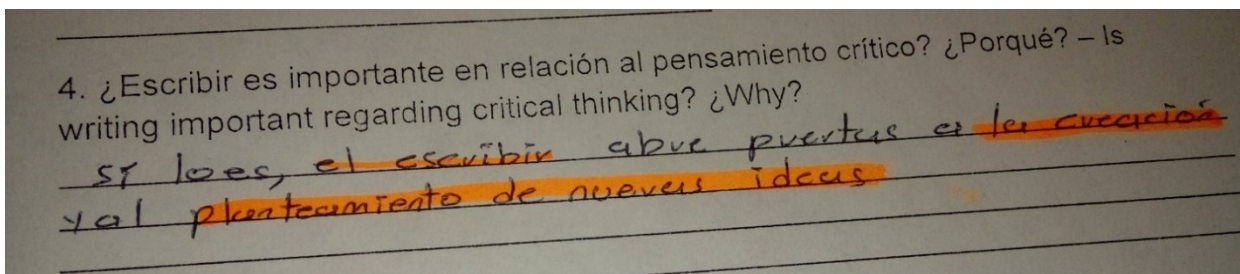 4. ¿Escribir es importante en relación al pensamiento crítico? ¿Porqué? – Is
writing important regarding critical thinking? ¿Why?
sí lo es, el escribir abre puertas a la creación
y al planteamiento de nuevas ideas